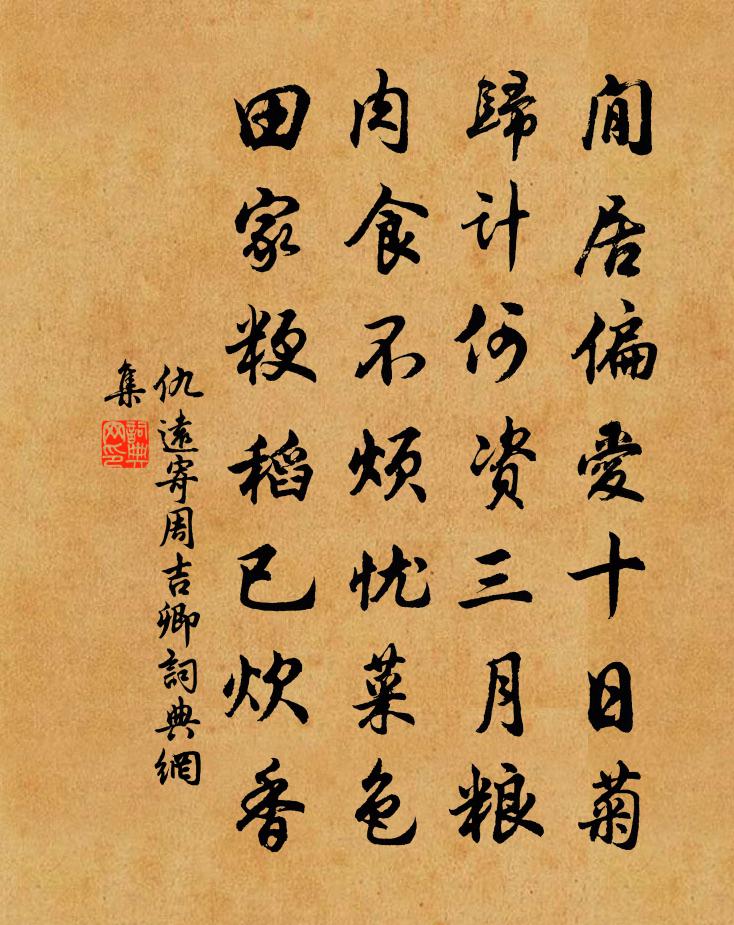 閒居偏愛十日菊
歸计何资三月粮
肉食不烦忧菜色
田家粳稻已炊香
仇遠寄周吉卿詞典網
集
詞典
网印